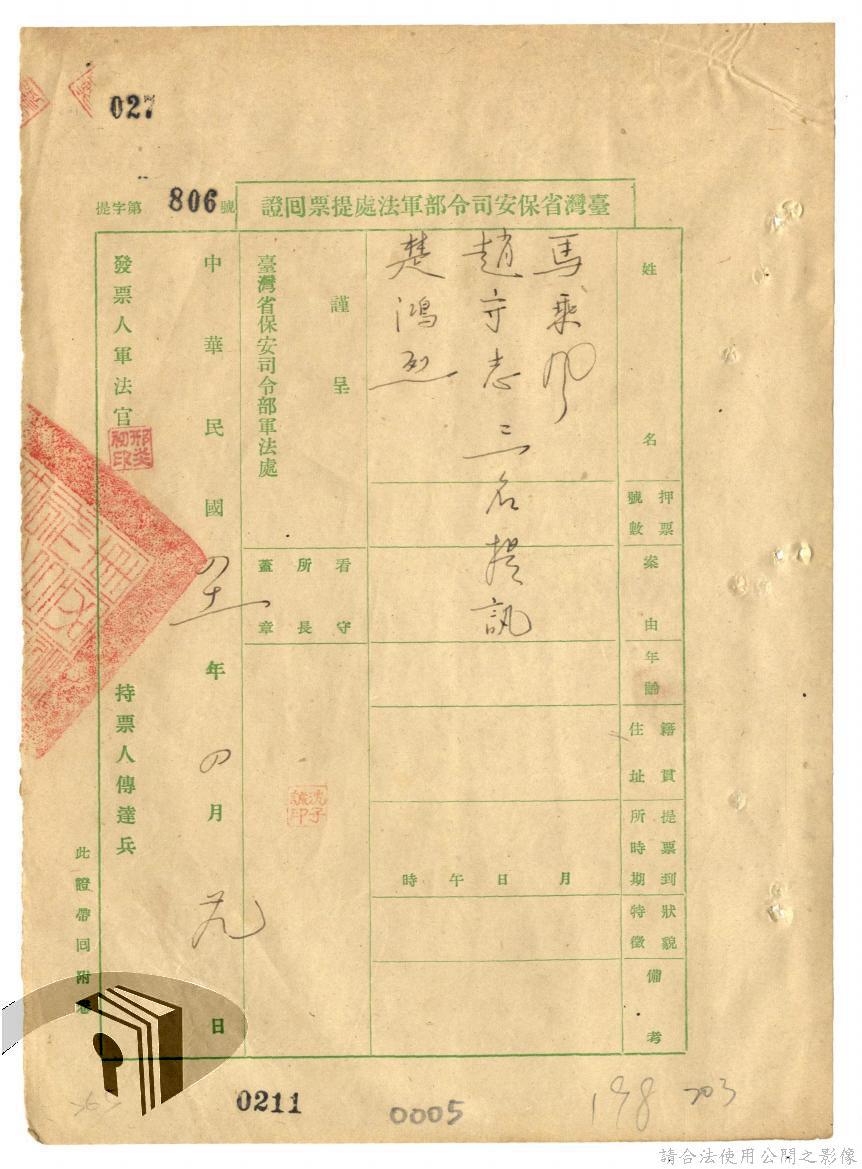 027
提字第806號
臺灣省保安司令部軍法處提票回證
姓名
馬乘風
趙守志 三名提訊
楚鴻烈
押票號數
案由
年齡
籍貫住址
提票到所時期
月 日 午 時
狀貌特徵
備考
謹呈
臺灣省保安司令部軍法處
看守所長蓋章
沈子誠印
中華民國四十一年四月 日
發票人軍法官
邢炎初印
持票人傳達兵
此證帶回附卷
0211
0005
198
203
請合法使用公開之影像